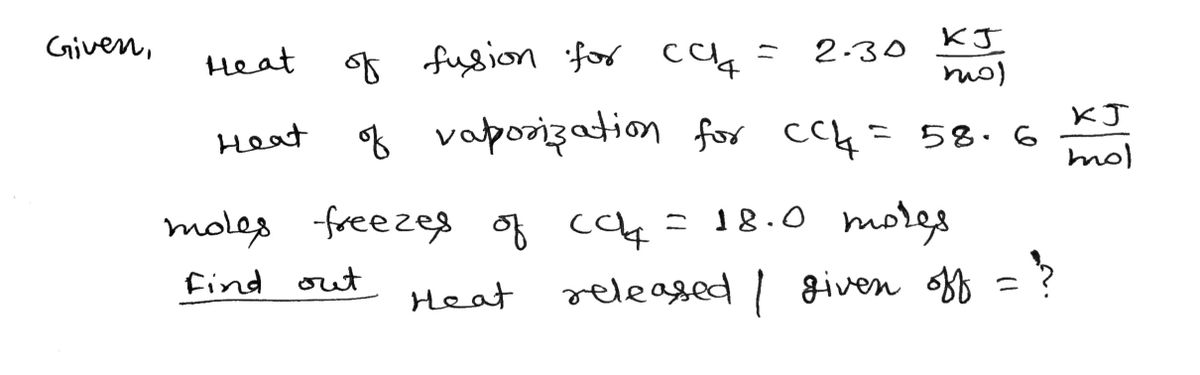 Given, Heat of fusion for CCl4 = 2.30 KJ/mol
Heat of vaporization for CCl4 = 58.6 KJ/mol
moles freezes of CCl4 = 18.0 moles
Find out Heat released / given off = ?